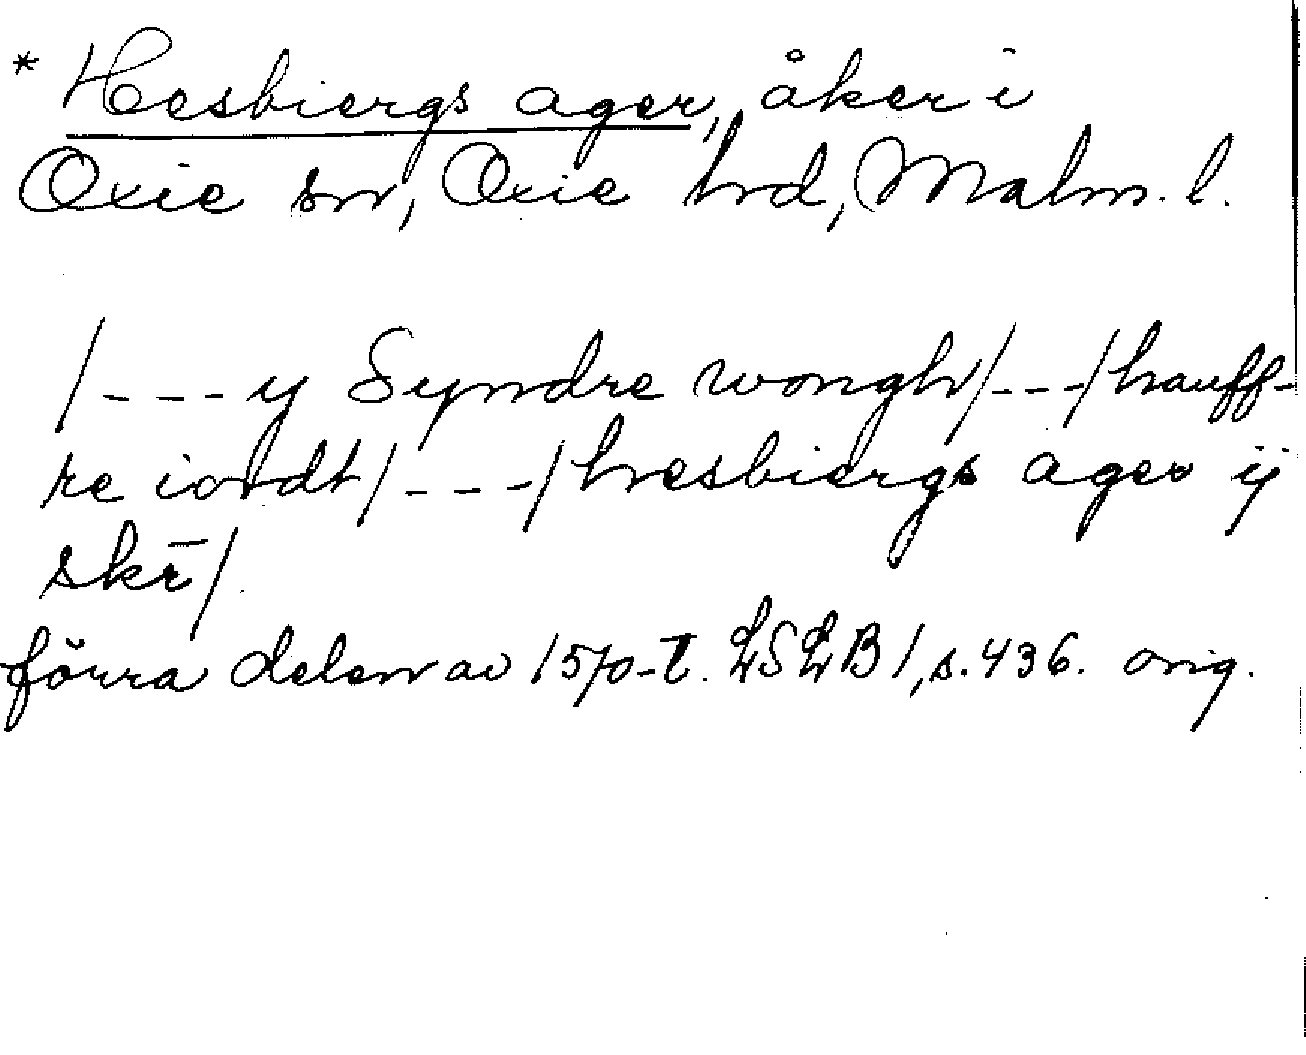 * Hesbiergs ager, åker i
Oxie sn, Oxie hd, Malm. l.
/---y Syndre wongh/---/hauff-
re iordt/---/hesbiergs ager ij
skr̄/.
förra delen av 1570-t. LSLB 1, s. 436. orig.